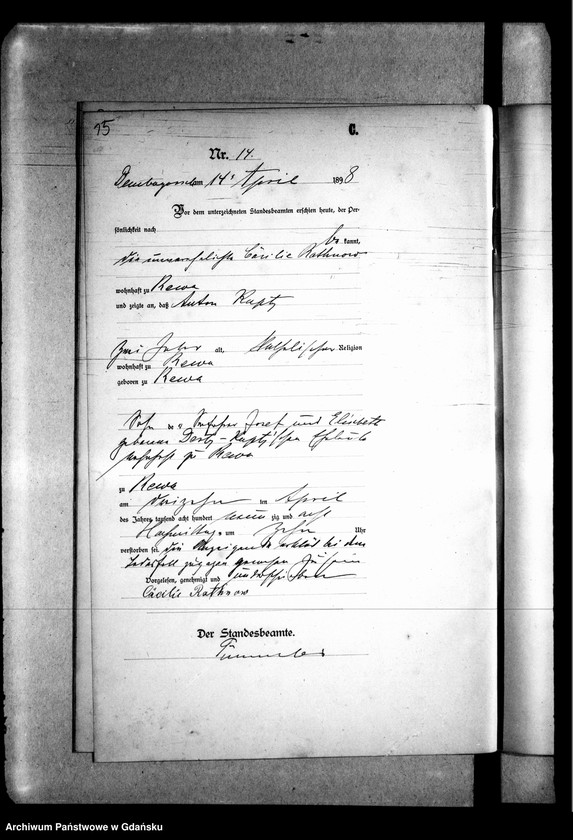 15
C.
Nr. 14.
am 14ᵗ April 1898
Vor dem unterzeichneten Standesbeamten erschien heute, der Per-
sönlichkeit nach
be kannt,
die unverehelichte Cäcilie Rathnow
wohnhaft zu Rewa
und zeigte an, daß Anton
zwei Jahr alt, Katholischer Religion
wohnhaft zu Rewa
geboren zu Rewa
Sohn de r Josef und Elisabeth
geborene Eheleute
wohnhaft zu Rewa
zu Rewa
am dreizehn ten April
des Jahres tausend acht hundert neun zig und acht
Nachmittags um zehn Uhr
verstorben sei. Die Anzeigende erklärt bei dem
Todesfall zugegen gewesen zu sein
Vorgelesen, genehmigt und unterschrieben
Cäcilie Rathnow
Der Standesbeamte.
Archiwum Państwowe w Gdańsku